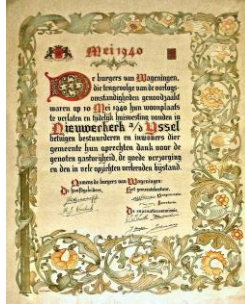 Mei 1940
De burgers van Wageningen,
die tengevolge van de oorlogs-
omstandigheden genoodzaakt
waren op 10 Mei 1940 hun woonplaats
te verlaten en tijdelijk huisvesting vonden in
Nieuwerkerk a/d Yssel
betuigen bestuurderen en inwoners dier
gemeente hun oprechten dank voor de
genoten gastvrijheid, de goede verzorging
en den in vele opzichten verleenden bijstand.
Namens de burgers van Wageningen:
De hoofdgeleider, Het gemeentebestuur,
De evacuatiecommissie,